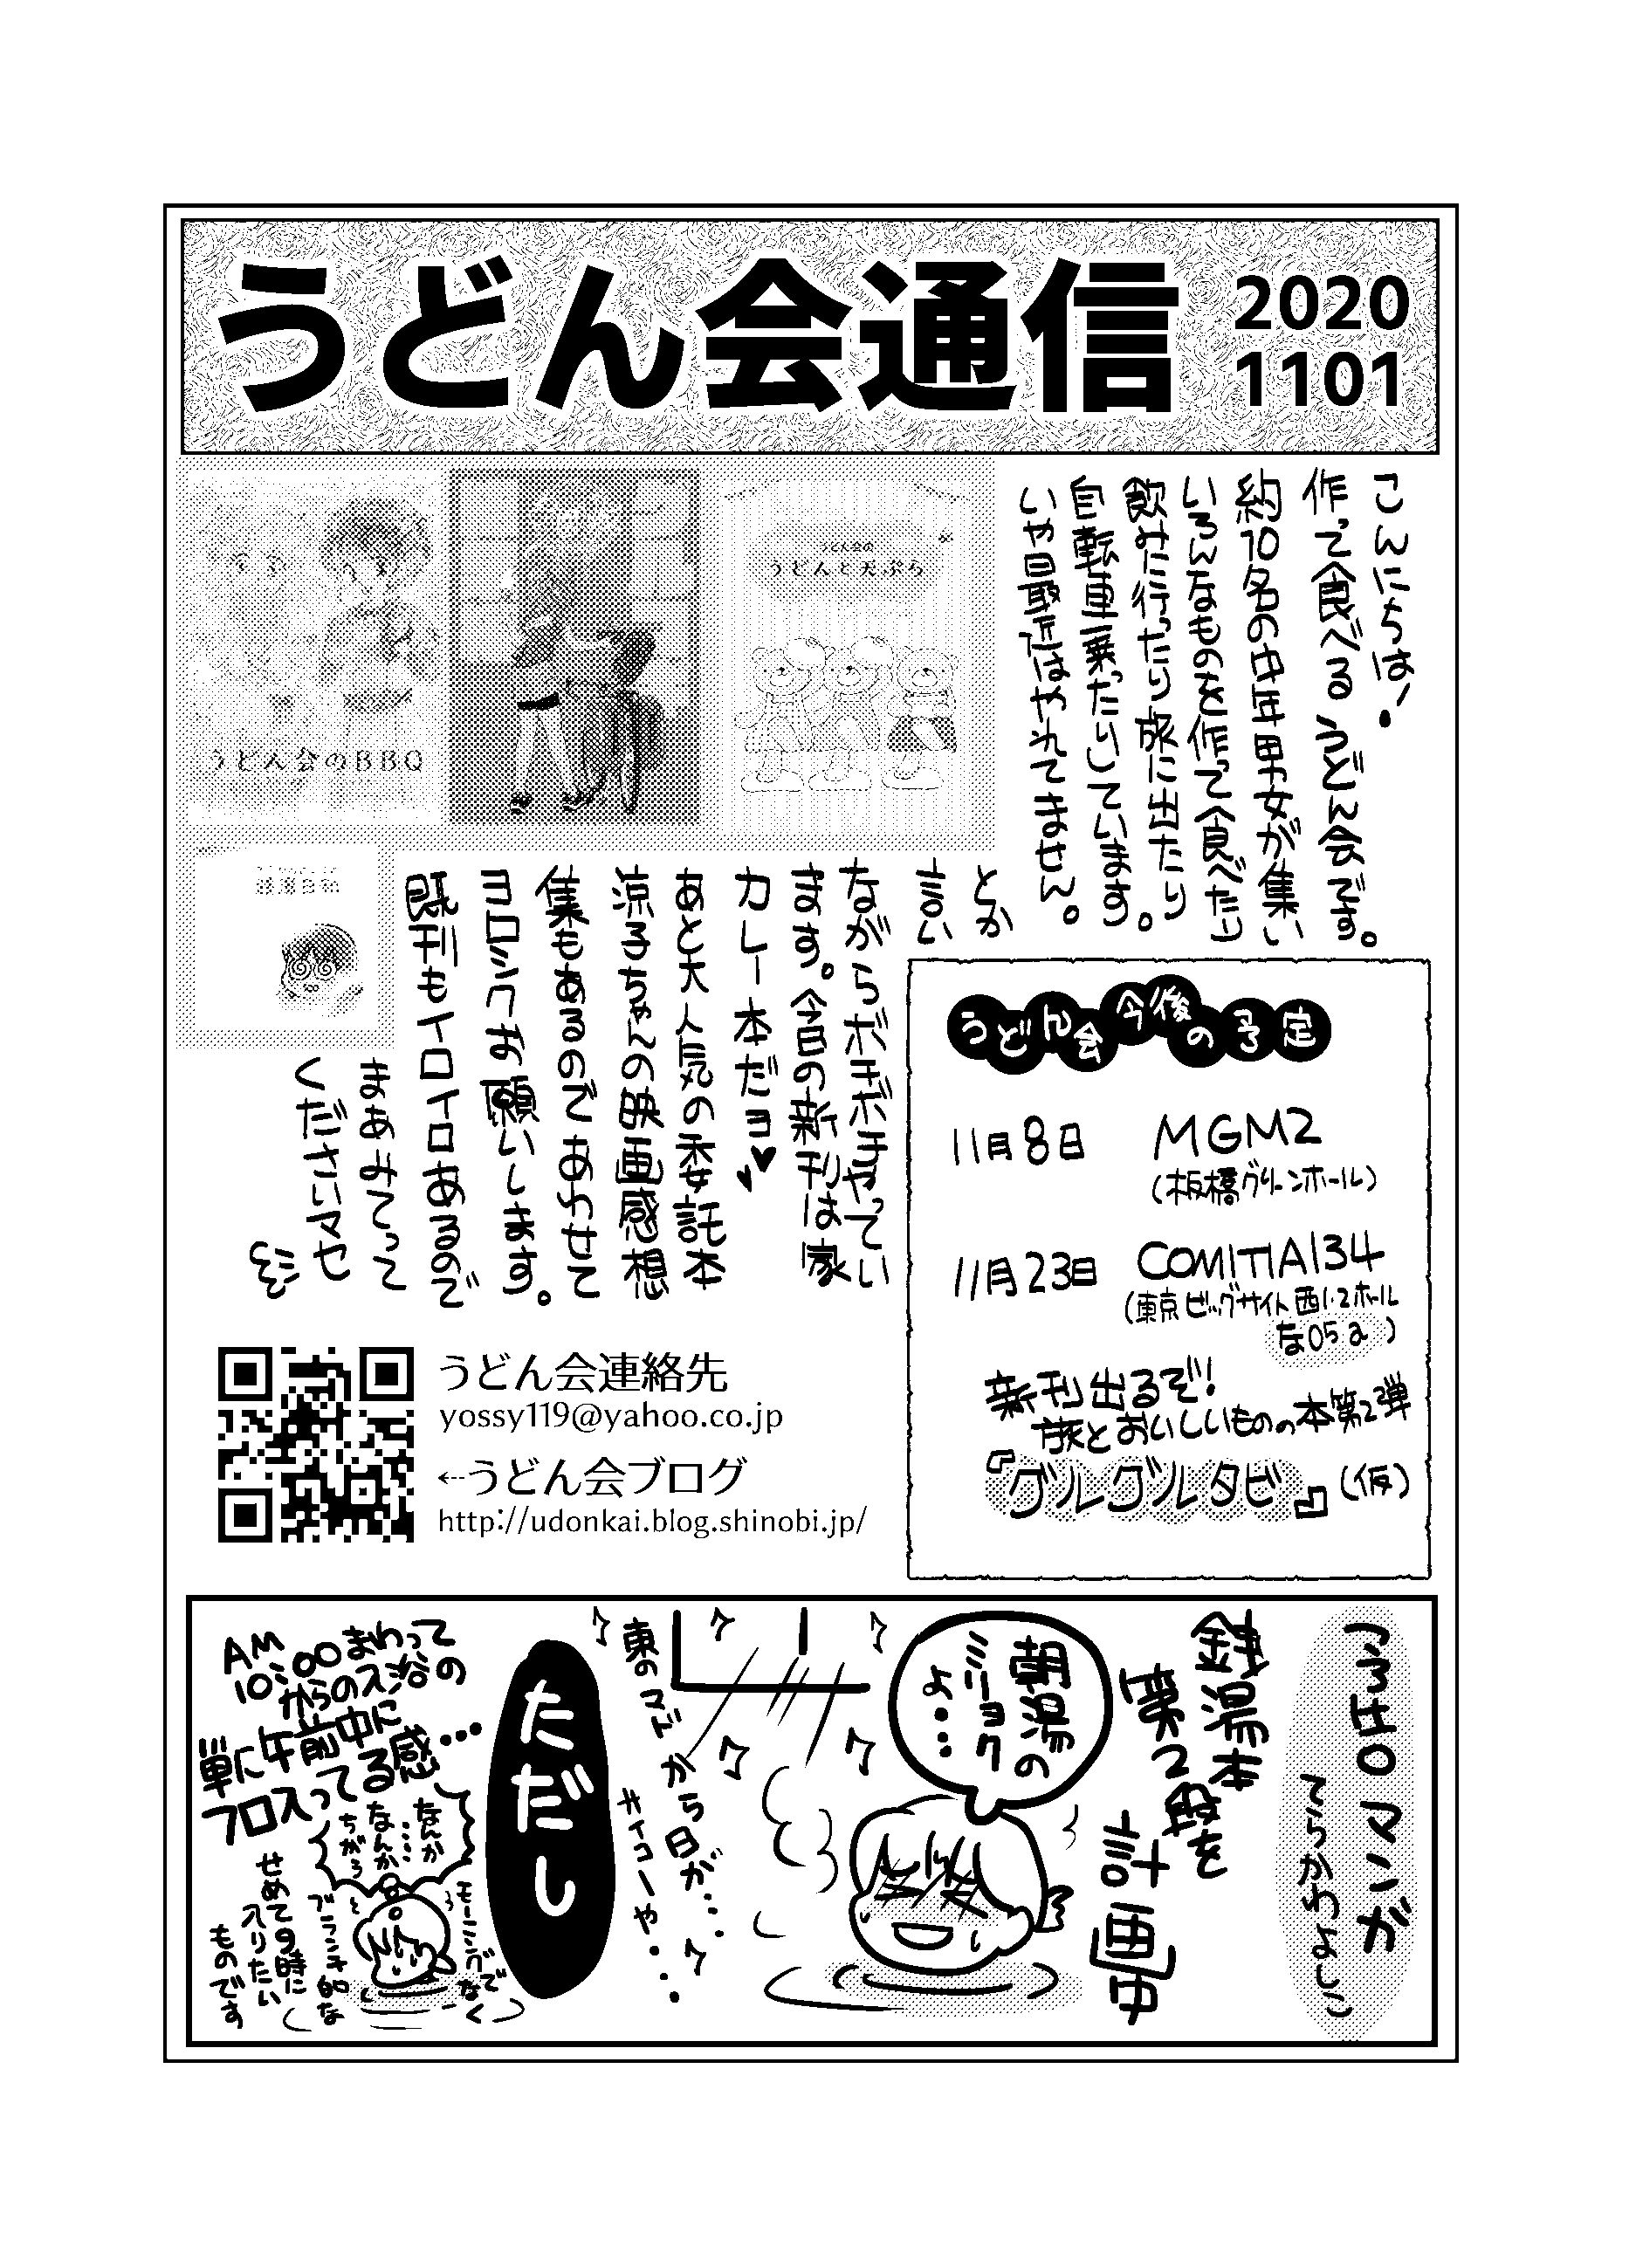 うどん会通信
2020
1101
こんにちは、
作って食べるうどん会です。
約10名の中年男女が集い
いろんなものを作って食べたり
飲みに行ったり旅に出たり
自転車乗ったりしています。
いや最近はやれてません。
とか
言い
ながらボチボチやってい
ます。今日の新刊は家
カレー本だヨ♥
あと大人気の委託本
涼子ちゃんの映画感想
集もあるのであわせて
ヨロシクお願いします。
既刊もイロイロあるので
まあみてって
くださいマセ
うどん会のBBQ
うどん会の
うどんと天ぷら
うどん会今後の予定
11月8日 MGM2
(板橋グリーンホール)
11月23日 COMITIA134
(東京ビッグサイト西1・2ホール
な05a)
新刊出るぞ!
旅とおいしいものの本第2弾
『グルグルタビ』(仮)
うどん会連絡先
yossy119@yahoo.co.jp
←うどん会ブログ
http://udonkai.blog.shinobi.jp/
マンガ
てらかわよしこ
銭湯本
第2段を
計画中
朝湯の
ミリョク
よ…
東のマドから日が・・・
サイコーや・・・
ただし
AM
10:00まわって
からの入浴の
単に午前中に
フロ入ってる感…
なんか
……
なんか
ちがう
モーニングで
なく
ブランチ的な
せめて9時に
入りたい
ものです